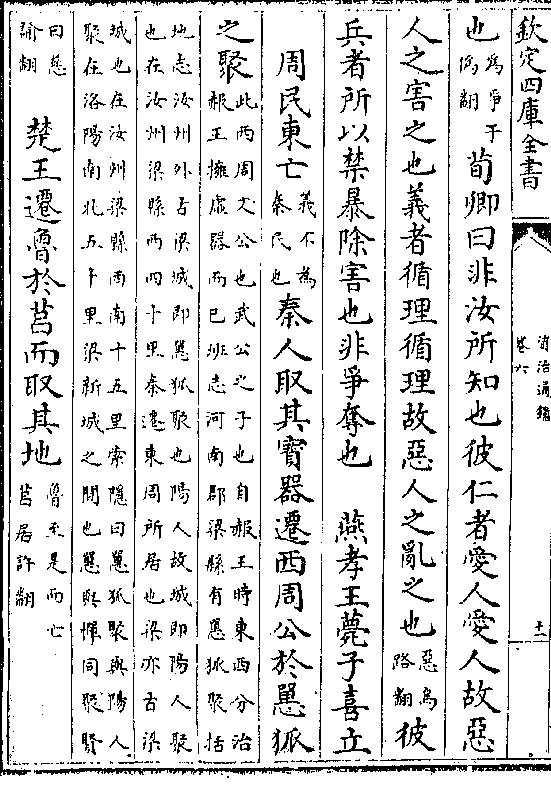 欽定四庫全書
資治通鑑
卷六
十二
也為爭于偽翻荀卿曰非汝所知也彼仁者愛人愛人故惡
人之害之也義者循理循理故惡人之亂之也惡烏路翻彼
兵者所以禁暴除害也非爭奪也　燕孝王薨子喜立
周民東亡義不為秦民也秦人取其寶器遷西周公於𢠸狐
之聚此西周文公也武公之子也自赧王時東西分治赧王擁虛器而已班志河南郡梁縣有𢠸狐聚括
地志汝州外古梁城即𢠸狐聚也陽人故城即陽人聚也在汝州梁縣西四十里秦遷東周所居也梁亦古梁
城也在汝州梁縣西南十五里索隱曰𢠸狐聚與陽人聚在洛陽南北五十里梁新城之間也𢠸與憚同聚賢
曰慈諭翻　楚王遷魯於莒而取其地魯至是而亡莒居許翻